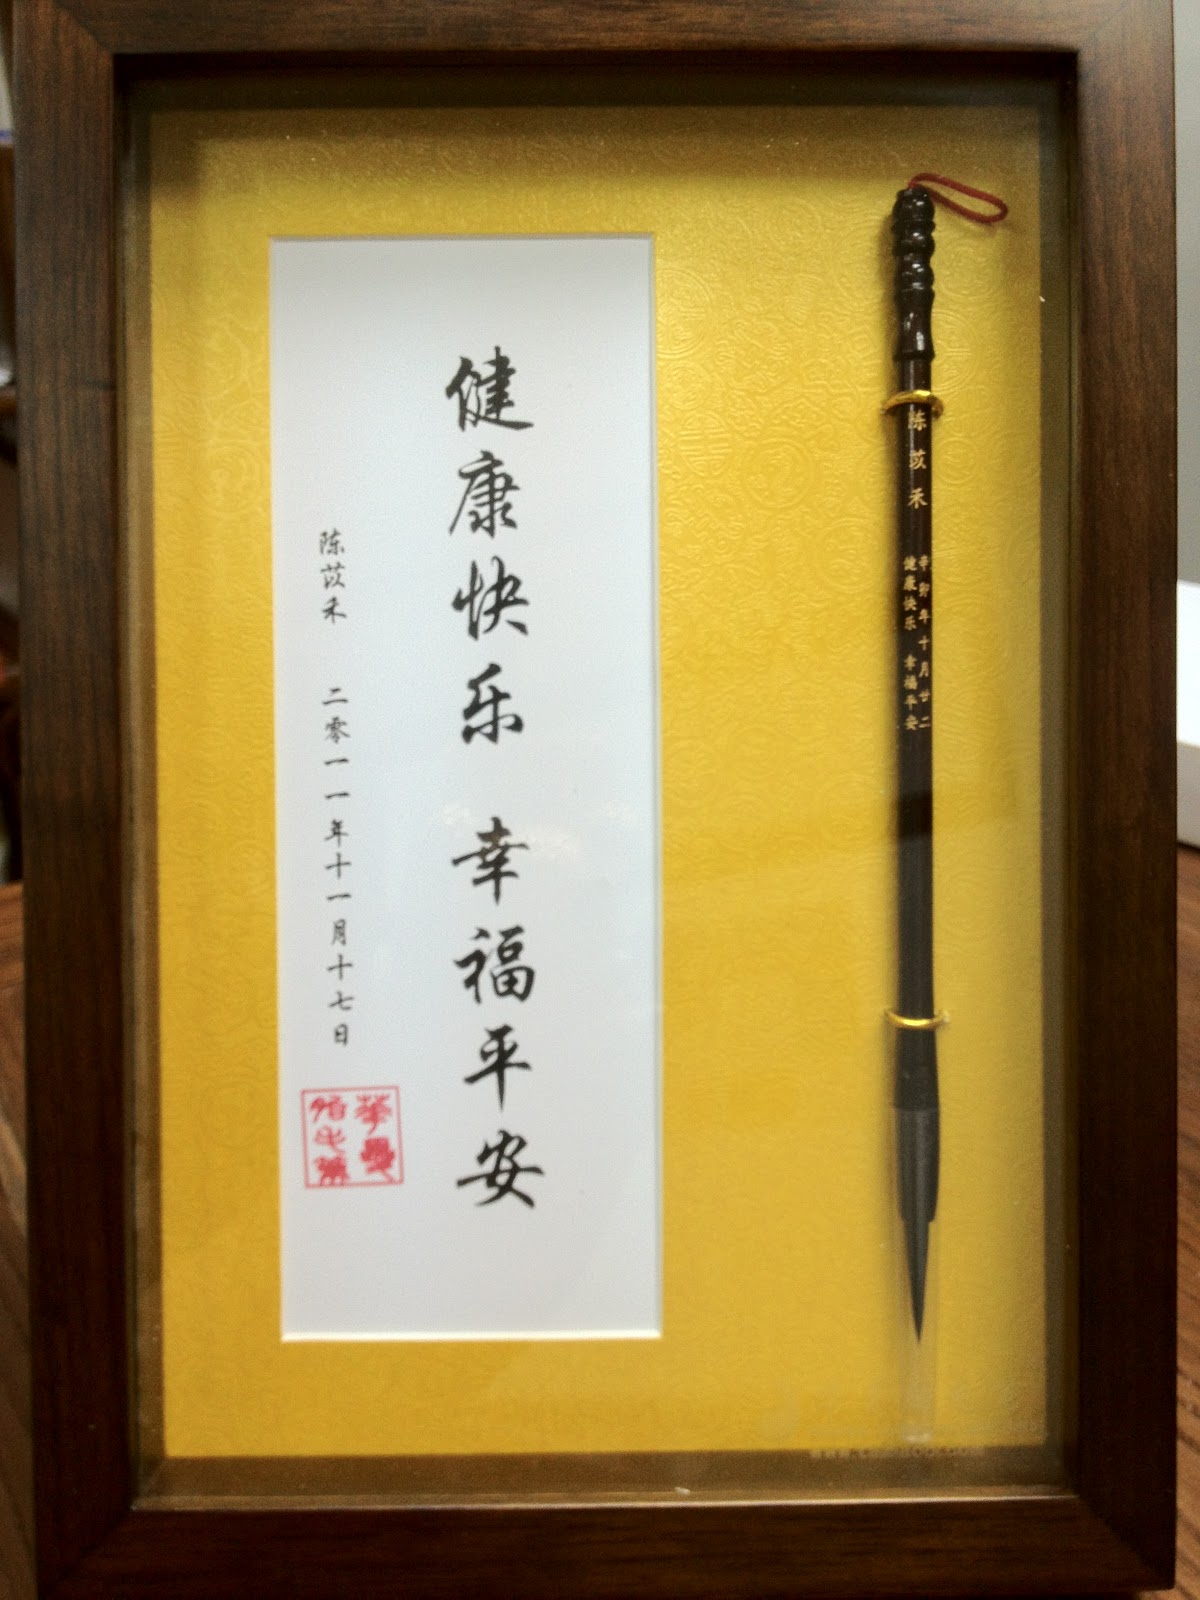 健康快乐 幸福平安
陈苡禾 二零一一年十一月十七日
陈苡禾
辛卯年十月廿二
健康快乐 幸福平安